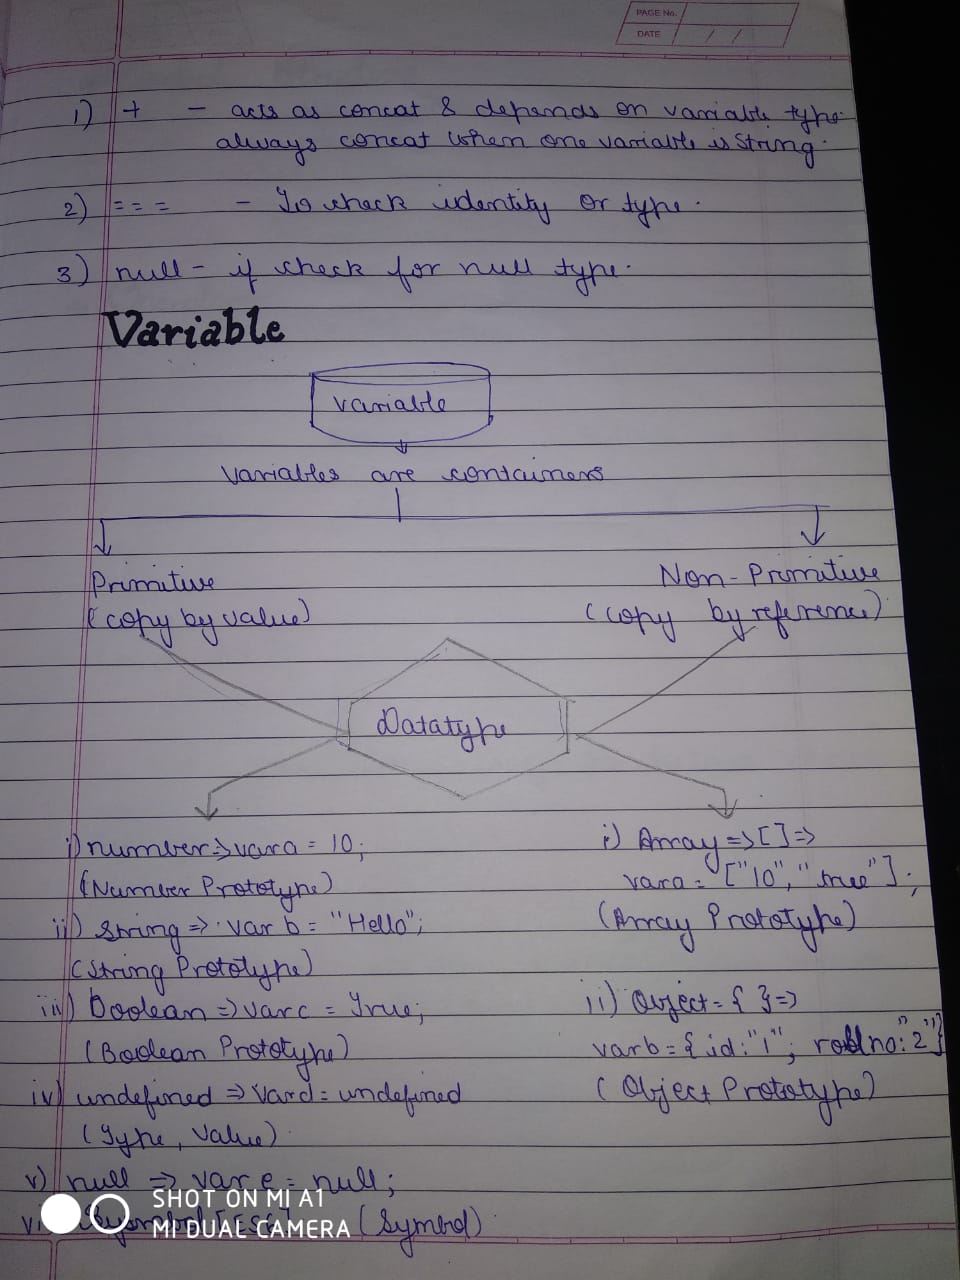 PAGE No.
DATE / /
1) + - acts as concat & depends on variable type
always concat when one variable is String.
2) === - To check identity or type.
3) null - if check for null type.
Variable
variable
Variables are containers
Primitive
(copy by value)
Non-Primitive
(copy by reference)
Datatype
i) number => var a = 10;
(Number Prototype)
ii) string => var b = "Hello";
(String Prototype)
iii) boolean => var c = True;
(Boolean Prototype)
iv) undefined => var d = undefined
(Type, Value)
v) null => var e = null;
vi) Symbol [ES6] (Symbol)
i) Array => [ ] =>
var a = ["10", "true"];
(Array Prototype)
ii) Object = { } =>
var b = { id: "1"; roll no: "2"}
(Object Prototype)
SHOT ON MI A1
MI DUAL CAMERA